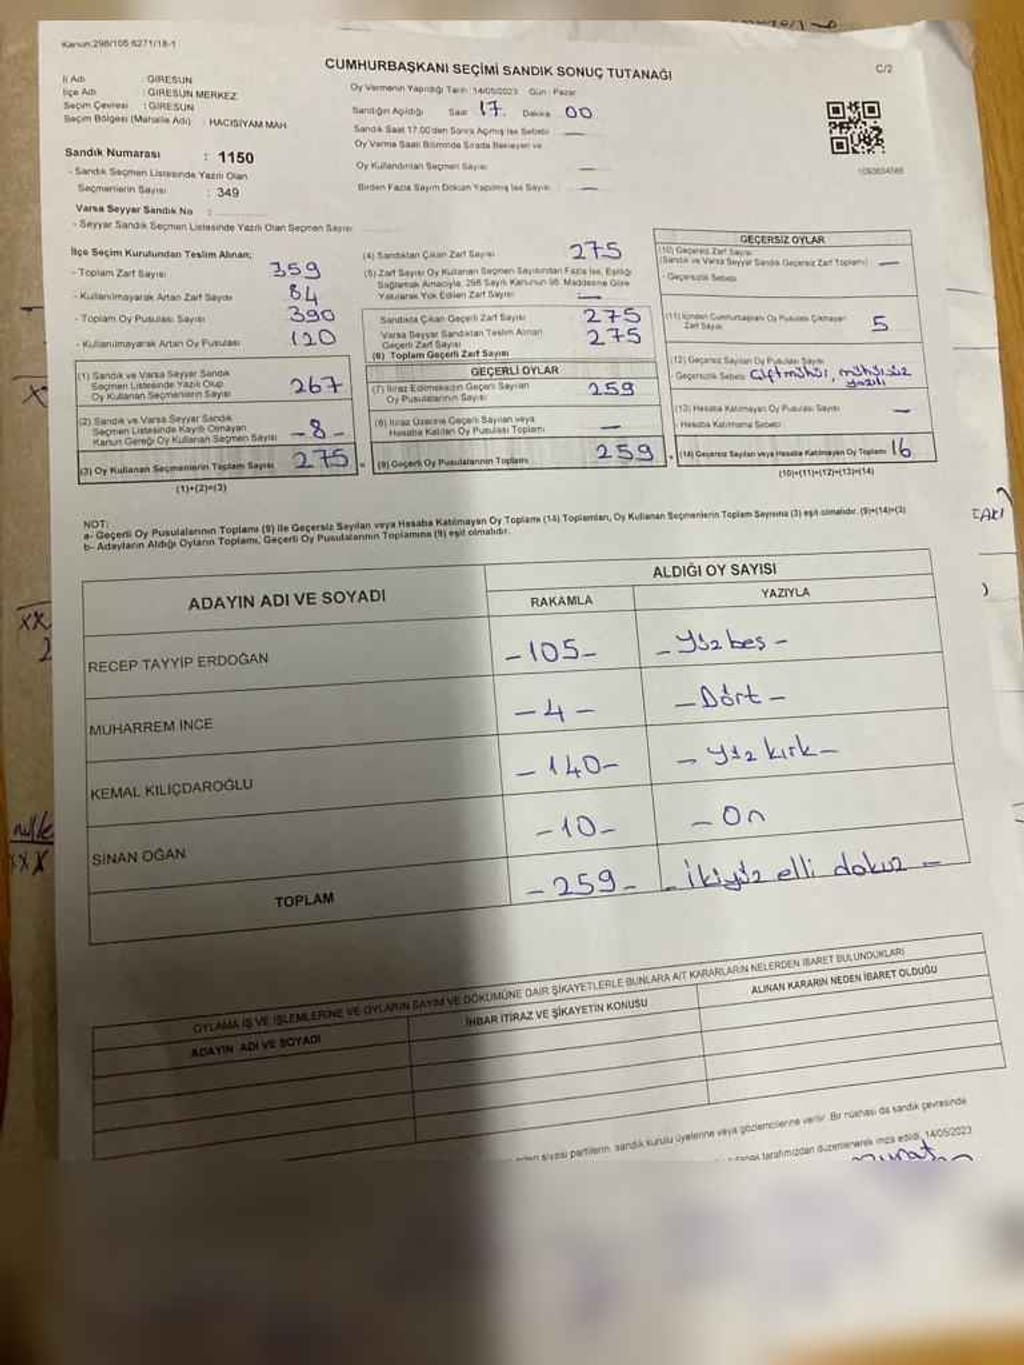 Kanun:298/105 6271/18-1
CUMHURBAŞKANI SEÇİMİ SANDIK SONUÇ TUTANAĞI
C/2
İl Adı : GİRESUN
İlçe Adı : GİRESUN MERKEZ
Seçim Çevresi : GİRESUN
Seçim Bölgesi (Mahalle Adı) : HACISİYAM MAH
Oy Vermenin Yapıldığı Tarih :14/05/2023 Gün : Pazar
Sandığın Açıldığı Saat 17. Dakika 00
Sandık Saat 17.00'den Sonra Açmış İse Sebebi
Oy Verme Saati Bitiminde Sırada Bekleyen ve
Oy Kullandırılan Seçmen Sayısı
Birden Fazla Sayım Döküm Yapılmış İse Sayısı
Sandık Numarası : 1150
- Sandık Seçmen Listesinde Yazılı Olan
Seçmenlerin Sayısı : 349
Varsa Seyyar Sandık No :
- Seyyar Sandık Seçmen Listesinde Yazılı Olan Seçmen Sayısı
İlçe Seçim Kurulundan Teslim Alınan;
- Toplam Zarf Sayısı 359
- Kullanılmayarak Artan Zarf Sayısı 84
- Toplam Oy Pusulası Sayısı 390
- Kullanılmayarak Artan Oy Pusulası 120
(1) Sandık ve Varsa Seyyar Sandık
Seçmen Listesinde Yazılı Olup
Oy Kullanan Seçmenlerin Sayısı 267
(2) Sandık ve Varsa Seyyar Sandık
Seçmen Listesinde Kayıtlı Olmayan
Kanun Gereği Oy Kullanan Seçmen Sayısı -8-
(3) Oy Kullanan Seçmenlerin Toplam Sayısı 275
(1)+(2)=(3)
(4) Sandıktan Çıkan Zarf Sayısı 275
(5) Zarf Sayısı Oy Kullanan Seçmen Sayısından Fazla İse, Eşitliği
Sağlamak Amacıyla, 298 Sayılı Kanunun 98. Maddesine Göre
Yakılarak Yok Edilen Zarf Sayısı —
Sandıkta Çıkan Geçerli Zarf Sayısı 275
Varsa Seyyar Sandıktan Teslim Alınan
Geçerli Zarf Sayısı 275
(6) Toplam Geçerli Zarf Sayısı
GEÇERLİ OYLAR
(7) İtiraz Edilmeksizin Geçerli Sayılan
Oy Pusulalarının Sayısı 259
(8) İtiraz Üzerine Geçerli Sayılan veya
Hesaba Katılan Oy Pusulası Toplamı —
(9) Geçerli Oy Pusulalarının Toplamı 259
GEÇERSİZ OYLAR
(10) Geçersiz Zarf Sayısı
(Sandık ve Varsa Seyyar Sandık Geçersiz Zarf Toplamı) —
- Geçersizlik Sebebi
(11) İçinden Cumhurbaşkanı Oy Pusulası Çıkmayan
Zarf Sayısı 5
(12) Geçersiz Sayılan Oy Pusulası Sayısı
- Geçersizlik Sebebi Çift mühür, mühürsüz
yazılı
(13) Hesaba Katılmayan Oy Pusulası Sayısı —
- Hesaba Katılmama Sebebi
(14) Geçersiz Sayılan veya Hesaba Katılmayan Oy Toplamı 16
(10)+(11)+(12)+(13)=(14)
NOT:
a- Geçerli Oy Pusulalarının Toplamı (9) ile Geçersiz Sayılan veya Hesaba Katılmayan Oy Toplamı (14) Toplamları, Oy Kullanan Seçmenlerin Toplam Sayısına (3) eşit olmalıdır. (9)+(14)=(3)
b- Adayların Aldığı Oyların Toplamı, Geçerli Oy Pusulalarının Toplamına (9) eşit olmalıdır.
ADAYIN ADI VE SOYADI
ALDIĞI OY SAYISI
RAKAMLA YAZIYLA
RECEP TAYYİP ERDOĞAN -105- - Yüz beş -
MUHARREM İNCE -4- - Dört -
KEMAL KILIÇDAROĞLU -140- - Yüz kırk -
SİNAN OĞAN -10- - On
TOPLAM -259- - İkiyüz elli dokuz -
OYLAMA İŞ VE İŞLEMLERİNE VE OYLARIN SAYIM VE DÖKÜMÜNE DAİR ŞİKAYETLERLE BUNLARA AİT KARARLARIN NELERDEN İBARET BULUNDUKLARI
ADAYIN ADI VE SOYADI
İHBAR İTİRAZ VE ŞİKAYETİN KONUSU
ALINAN KARARIN NEDEN İBARET OLDUĞU
siyasi partilerin, sandık kurulu üyelerine veya gözlemcilerine verilir. Bir nüshası da sandık çevresinde
tarafımızdan düzenlenerek imza edildi. 14/05/2023